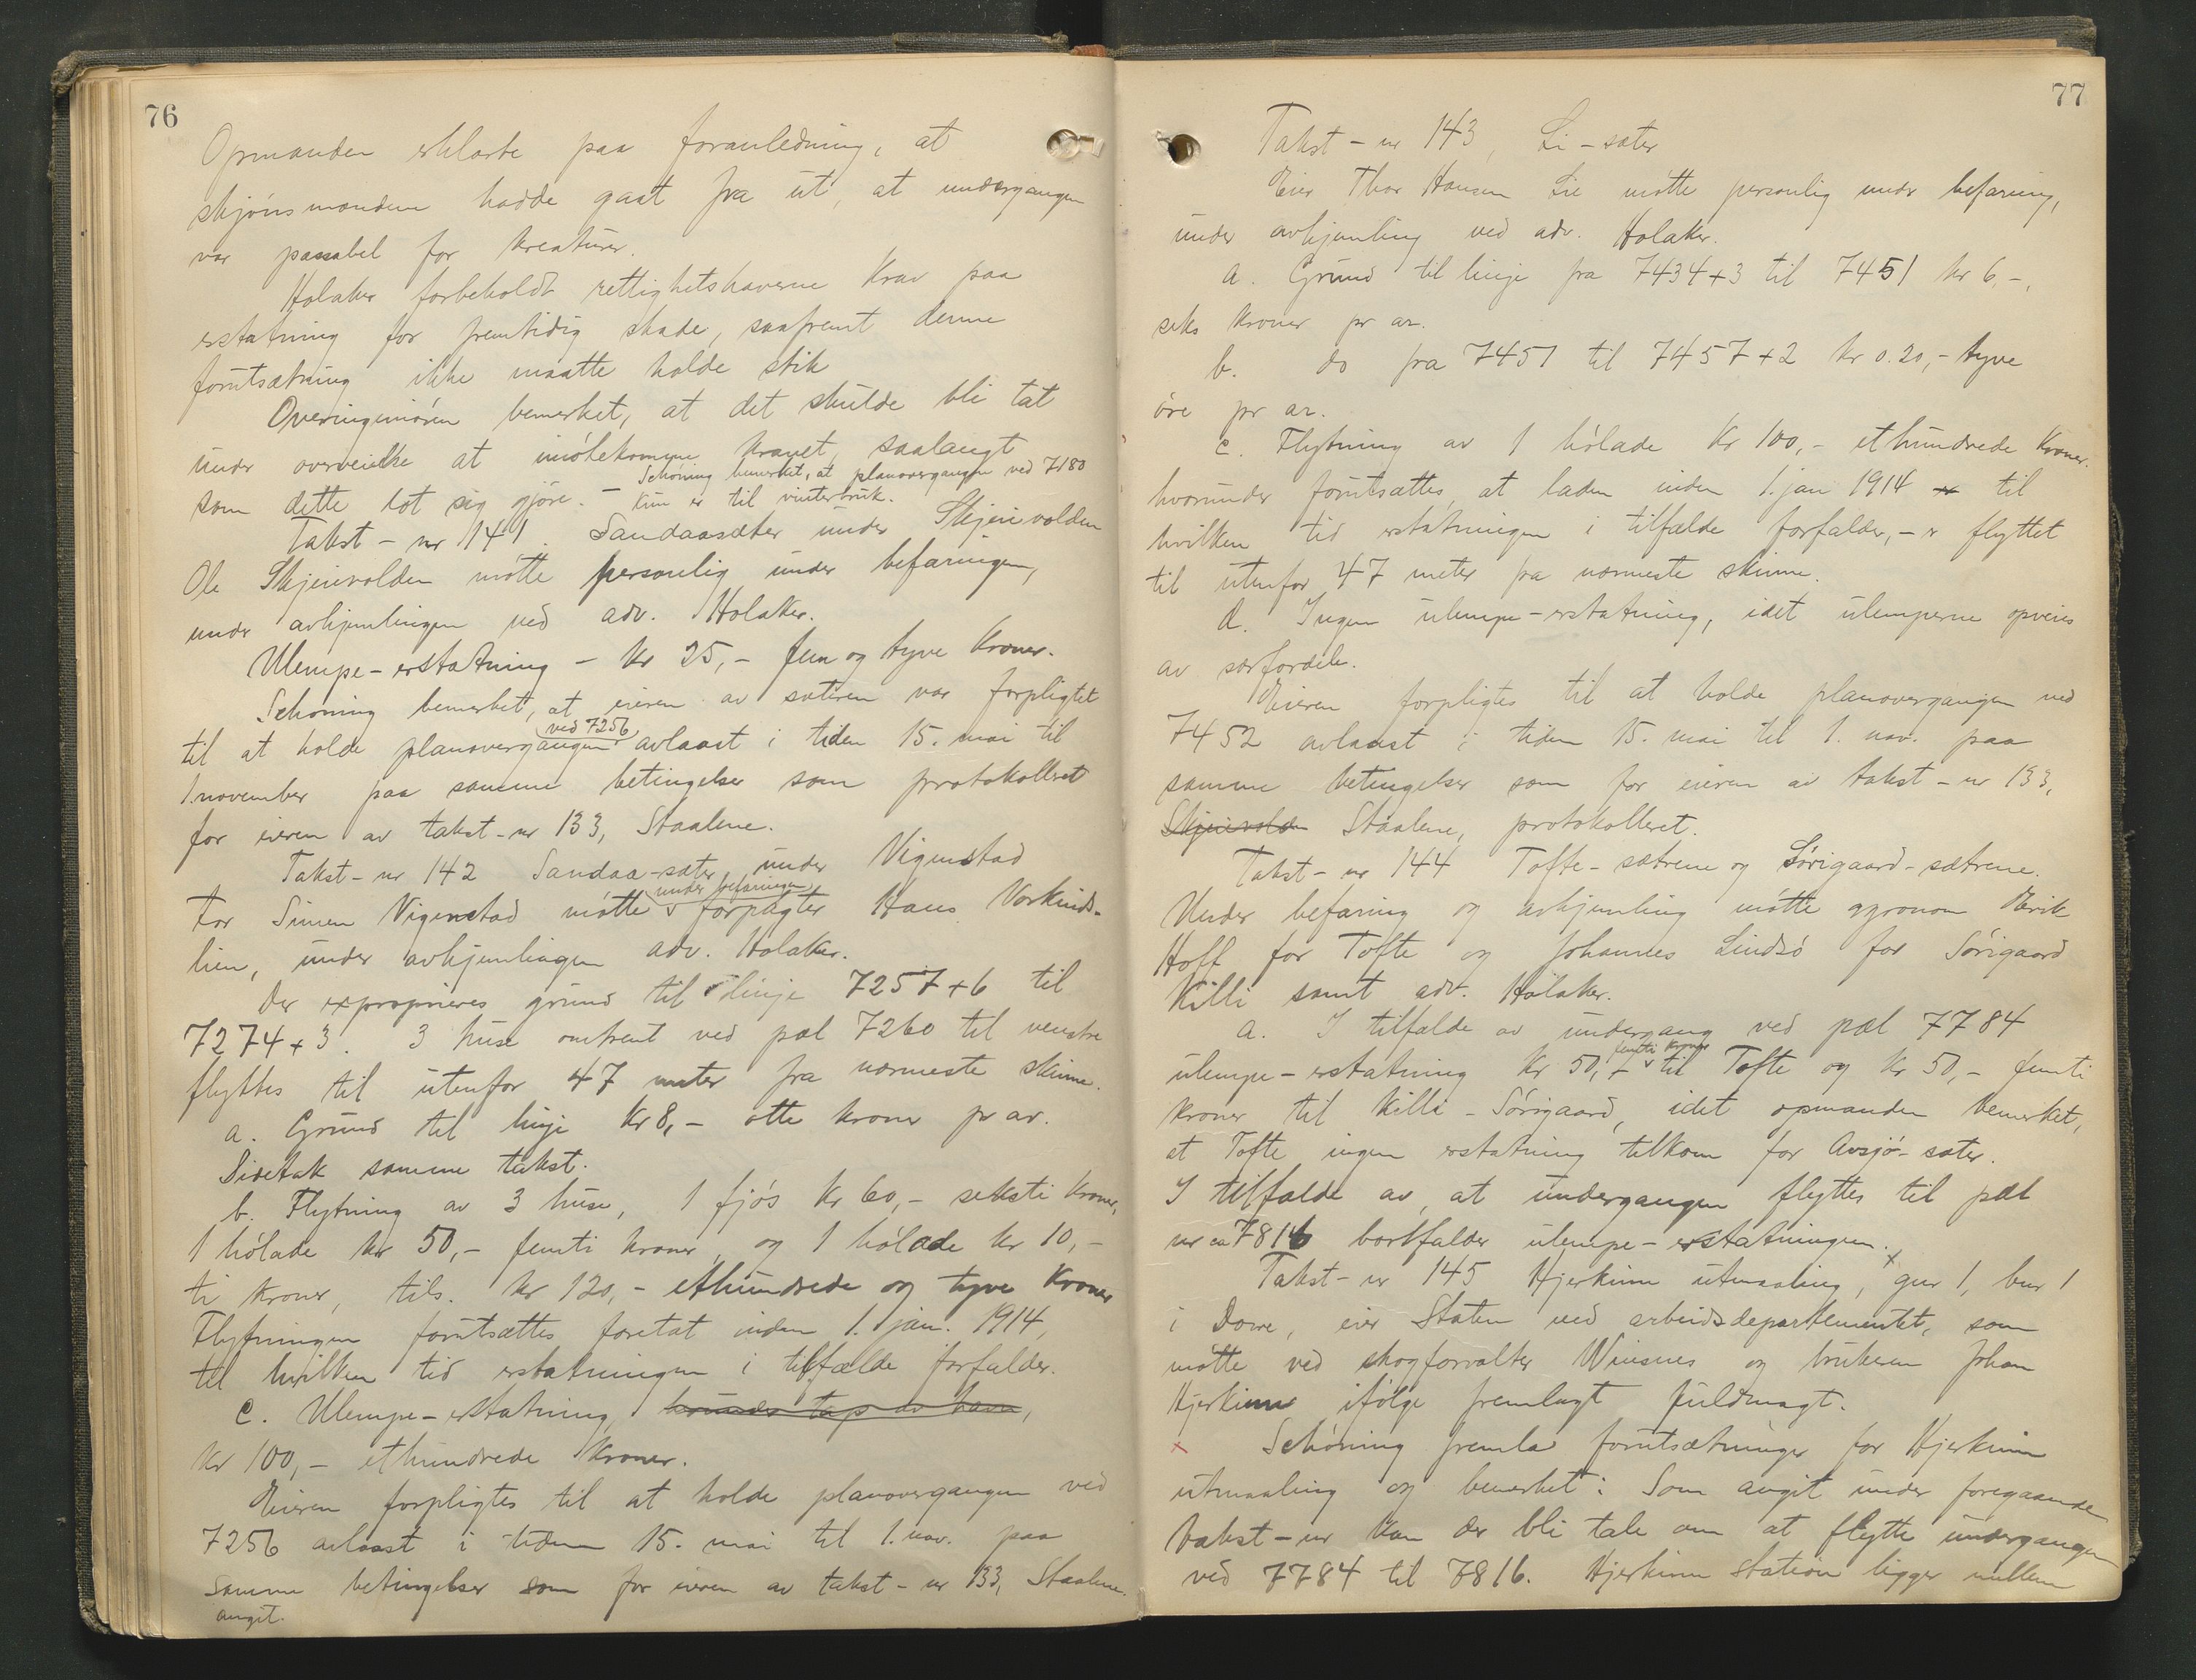 76
Opmanden erklærte paa foranledning, at
skjønsmændene hadde gaat fra ut, at undergangen
var passabel for kreaturer.
Holaker forbeholdt rettighetshaverne krav paa
erstatning for fremtidig skade, saafremt denne
forutsætning ikke maatte holde stik
Overingeniøren bemerket, at det skulde bli tat
under overveielse at imøtekomme kravet, saalangt
som dette lot sig gjøre. – Schøning bemerket, at planovergangen ved 7180
kun er til vinterbruk.
Takst-nr 141. Sandaasæter under Skjeievolden
Ole Skjeievolden møtte personlig under befaringen,
under avhjemlingen ved adv. Holaker.
Ulempe-erstatning – kr 25,- fem og tyve kroner.
Schøning bemerket, at eieren av sæteren var forpligtet
til at holde planovergangen ved 7256 avlaast i tiden 15. mai til
1. november paa samme betingelser som protokolleret
for eieren av takst-nr 133, Staalene.
Takst-nr 142 Sandaa-sæter under Vigenstad
For Simen Vigenstad møtte under befaringen forpagter Hans Vorkinds-
lien, under avhjemlingen adv. Holaker.
Der exproprieres grund til linje 7257+6 til
7274+3. 3 huse omtrent ved pæl 7260 til venstre
flyttes til utenfor 47 meter fra nærmeste skinne.
a. Grund til linje kr 8,- otte kroner pr ar.
Sidetak samme takst.
b. Flytning av 3 huse, 1 fjøs kr 60,- seksti kroner,
1 hølade kr 50,- femti kroner, og 1 hølade kr 10,-
ti kroner, tils. kr 120,- ethundrede og tyve kroner
Flytningen forutsættes foretat inden 1. jan. 1914,
til hvilken tid erstatningen i tilfælde forfalder.
c. Ulempe-erstatning, herunder tap av havn,
kr 100,- ethundrede kroner.
Eieren forpligtes til at holde planovergangen ved
7256 avlaast i tiden 15. mai til 1. nov. paa
samme betingelser som for eieren av takst-nr 133, Staalene.
angit.
77
Takst-nr 143, Li-sæter
Eier Thor Hansen Lie møtte personlig under befaring,
under avhjemling ved adv. Holaker.
a. Grund til linje fra 7434+3 til 7451 kr 6,-,
seks kroner pr ar.
b. do fra 7451 til 7457+2 kr 0.20,- tyve
øre pr ar.
c. Flytning av 1 hølade kr 100,- ethundrede kroner.
hvorunder forutsættes, at laden inden 1. jan 1914 er til
hvilken tid erstatningen i tilfælde forfalder, - er flyttet
til utenfor 47 meter fra nærmeste skinne.
d. Ingen ulempe-erstatning, idet ulemperne opveies
av særfordele.
Eieren forpligtes til at holde planovergangen ved
7452 avlaast i tiden 15. mai til 1. nov. paa
samme betingelser som for eieren av takst-nr 133,
Skjeievolden Staalene, protokolleret.
Takst-nr 144 Tofte-sætrene og Sørigaard-sætrene.
Under befaring og avhjemling møtte agronom Erik
Hoff for Tofte og Johannes Lindsø for Sørigaard
Killi samt adv. Holaker.
a. I tilfælde av undergang ved pæl 7784
ulempe-erstatning kr 50,- femti kroner til Tofte og kr 50,- femti
kroner til Killi-Sørigaard, idet opmanden bemerket,
at Tofte ingen erstatning tilkom for Avsjø-sæter.
I tilfælde av, at undergangen flyttes til pæl
nr ca 7816 bortfalder ulempe-erstatningen.
Takst-nr 145 Hjerkinn utmaaling, x gnr 1, bnr 1
i Dovre, eier Staten ved arbeidsdepartementet, som
møtte ved skogforvalter Winsnes og brukeren Johan
Hjerkinn ifølge fremlagt fuldmagt.
x Schøning fremla forutsætninger for Hjerkinn
utmaaling og bemerket: Som angit under foregaaende
takst-nr kan der bli tale om at flytte undergangen
ved 7784 til 7816. Hjerkinn station ligger mellem